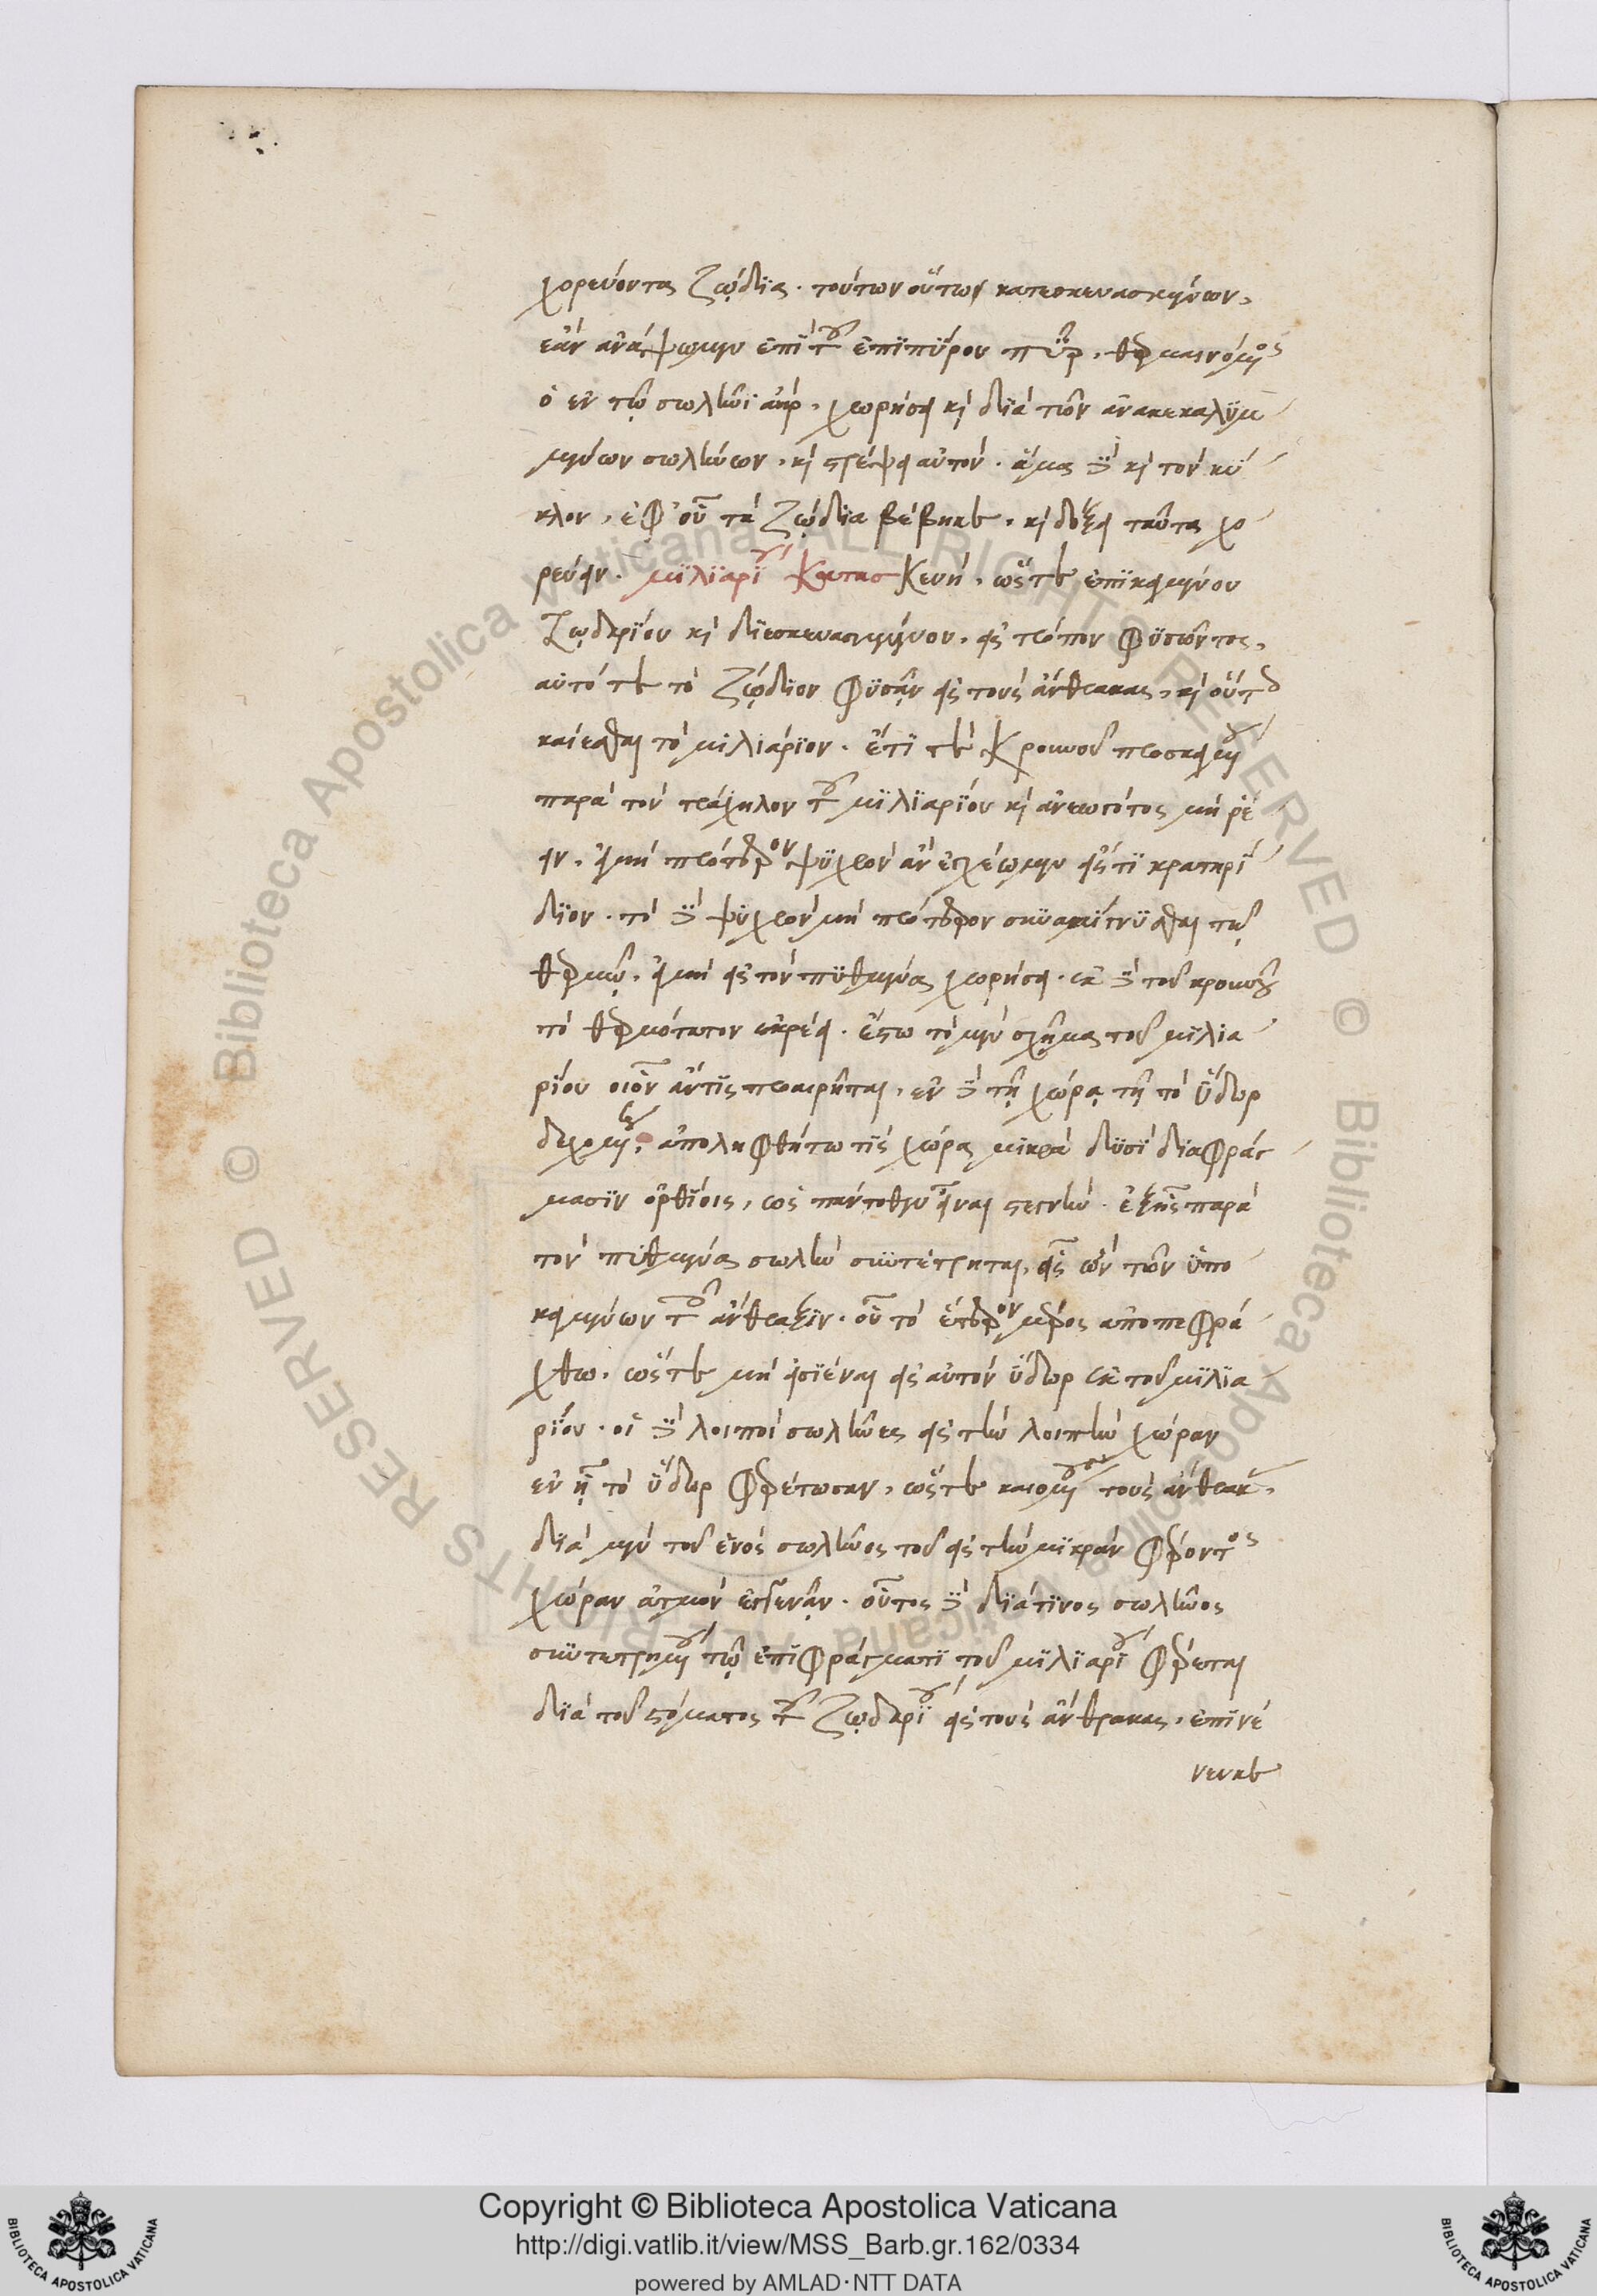 χορεύοντα ζῴδια. τούτων οὕτω κατεσκευασμένων,
ἐὰν ἀνάψωμεν ἐπὶ τοῦ ἐπιπύρου πῦρ, θερμαινόμενος
ὁ ἐν τῷ σωλῆνι ἀὴρ, χωρήσει καὶ διὰ τῶν ἀνακεκαλυμ
μένων σωλήνων, καὶ στρέψει αὐτὸν. ἅμα δὲ καὶ τὸν κύ
κλον, ἐφ' οὗ τὰ ζῴδια βέβηκε, καὶ δόξει ταῦτα χο
ρεύειν. μιλιαρίου κατασκευὴ, ὥστε ἐπικειμένου
ζῳδαρίου καὶ διεσκευασμένου, εἰς τρόπον φυσῶντος,
αὐτό τε τὸ ζῴδιον φυσᾷν εἰς τοὺς ἄνθρακας, καὶ οὕτω
καίεσθαι τὸ μιλιάριον. ἔτι τε κρουνοῦ προσκειμένου
παρὰ τὸν τράχηλον τοῦ μιλιαρίου καὶ ἀνεῳγότος μὴ ῥέ
ειν, εἰ μὴ πρότερον ψυχρὸν ἂν ἐγχέωμεν εἴς τι κρατηρί
διον. τὸ δὲ ψυχρὸν μὴ πρότερον συναμίγνυσθαι τῷ
θερμῷ, εἰ μὴ εἰς τὸν πυθμένα χωρήσει. ἐκ δὲ τοῦ κρουνοῦ
τὸ θερμότατον ἐκρέει. ἔστω τὸ μὲν σχῆμα τοῦ μιλια
ρίου οἷον ἄν τις προαιρῆται, ἐν δὲ τῇ χώρᾳ τῇ τὸ ὕδωρ
δεχομένῃ, ἀποληφθήτω τὶς χώρα μικρὰ δυσὶ διαφράγ
μασιν ὀρθίοις, ὡς παντοθεν εἶναι στεγνήν. ἑξῆς παρὰ
τὸν πυθμένα σωλὴν συντέτρηται, εἷς ὢν τῶν ὑπο
κειμένων τοῖς ἄνθραξιν. οὗ τὸ ἕτερον μέρος ἀποπεφρά
χθω, ὥστε μὴ εἰσιέναι εἰς αὐτὸν ὕδωρ ἐκ τοῦ μιλια
ρίου. οἱ δὲ λοιποὶ σωλῆνες εἰς τὴν λοιπὴν χώραν
ἐν ᾗ τὸ ὕδωρ φερέτωσαν, ὥστε καιομένους τοὺς ἄνθρακας,
διὰ μὲν τοῦ ἑνὸς σωλῆνος τοῦ εἰς τὴν μικρὰν φέροντος
χώραν ἀτμὸν ἐγγεννᾷν. οὗτος δὲ διά τινος σωλῆνος
συντετρημένου τῷ ἐπιφράγματι τοῦ μιλιαρίου φέρεται
διὰ τοῦ στόματος τοῦ ζῳδαρίου εἰς τοὺς ἄνθρακας, ἐπινέ
νευκε
Copyright © Biblioteca Apostolica Vaticana
http://digi.vatlib.it/view/MSS_Barb.gr.162/0334
powered by AMLAD·NTT DATA